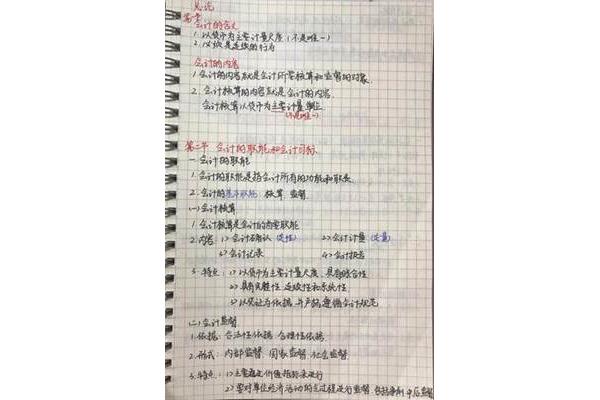 总论
第一章
会计的含义
1. 以货币为主要计量尺度（不是唯一）
2. 连续的行为
会计的内容
1. 会计的内容就是会计所要核算和监督的对象.
2. 会计核算的内容就是会计的内容.
会计核算以货币为主要计量单位.
(不是唯一)
第二节 会计的职能和会计目标
一、会计的职能
1. 会计的职能是指会计所有的功能和职责.
2. 会计的基本职能: 核算 监督
(一) 会计核算
1. 会计核算是会计的首要职能
2. 内容: 1> 会计确认 (定性) 2> 会计计量 (定量)
3> 会计记录 4> 会计报告
3. 特点: 1> 以货币为主要计量尺度, 具有综合性
2> 具有完整性 连续性和系统性
3> 以凭证为依据, 并严格遵循会计规范
(二) 会计监督
1. 依据: 合法性依据 合理性依据
2. 形式: 内部监督 国家监督 社会监督
3. 特点: 1> 主要 价值指标来进行
2> 要对单位经济活动的全过程进行监督, 包括事前 中 后监督